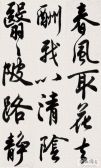 春風取花去
酬我以清陰
翳翳陂路靜